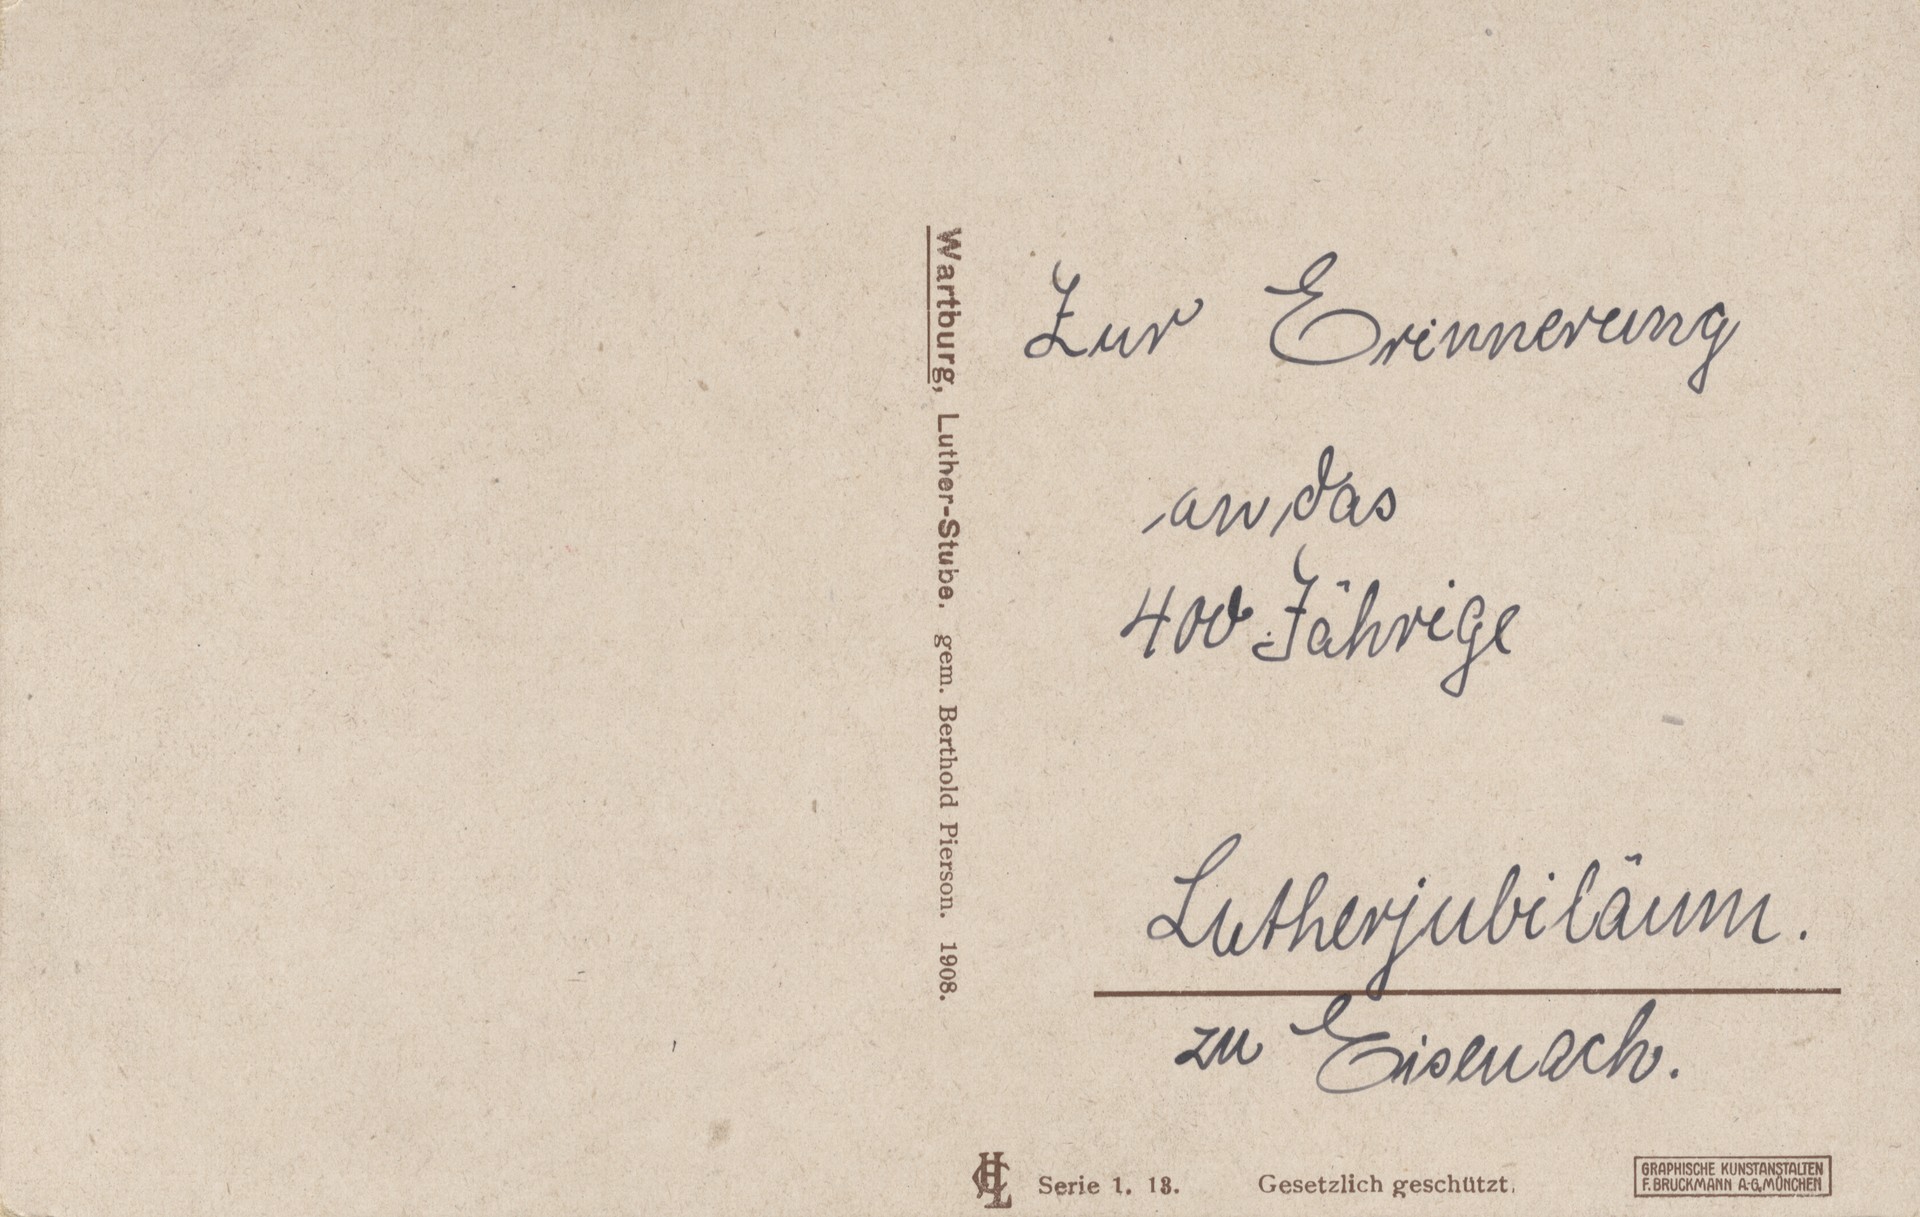 Wartburg, Luther-Stube. gem. Berthold Pierson. 1908.
Zur Erinnerung
an das
400 Jährige
Lutherjubiläum.
zu Eisenach.
HCL Serie 1. 13. Gesetzlich geschützt.
GRAPHISCHE KUNSTANSTALTEN
F. BRUCKMANN A-G, MÜNCHEN